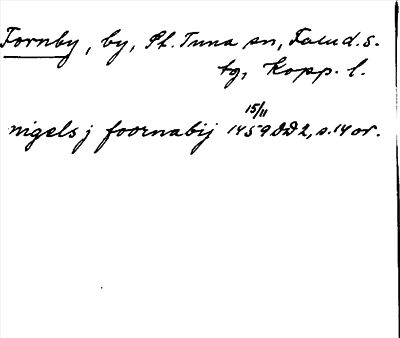 Fornby, by, St. Tuna sn, Falu d.s.
tg, Kopp. l.
15/11
nigels j foornabij 1459 DD2, s. 14 or.